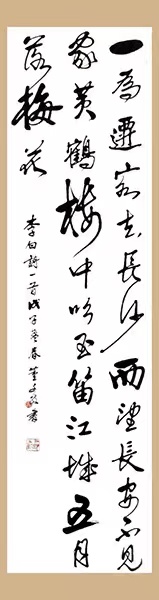 一為遷客去長沙西望長安不見
家黃鶴樓中吹玉笛江城五月
落梅花
李白詩一首戊子春書